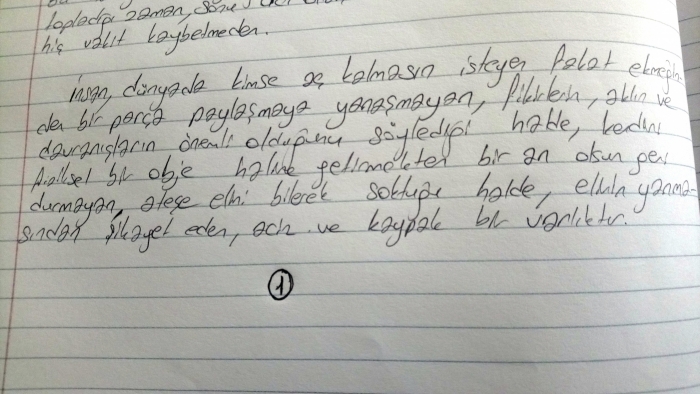 topladığı zaman,
hiç vakit kaybetmeden.
İnsan, dünyada kimse aç kalmasın isteyen fakat ekmeğin-
den bir parça paylaşmaya yanaşmayan, fikirlerin, aklın ve
davranışların önemli olduğunu söylediği halde, kendini
fiziksel bir obje haline getirmekten bir an olsun geri
durmayan, ateşe elini bilerek soktuğu halde, elinin yanma-
sından şikayet eden, aciz ve kaypak bir varlıktır.
1